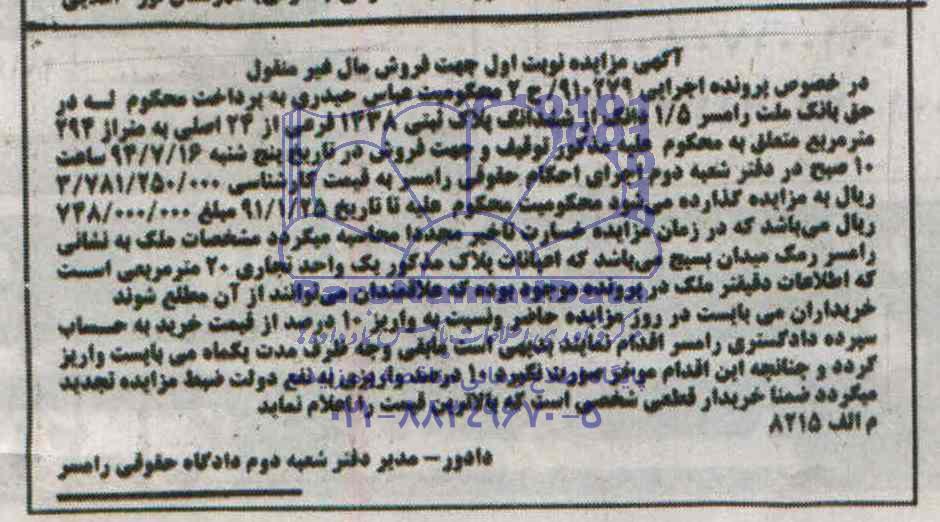 آگهی مزایده نوبت اول جهت فروش مال غیر منقول
در خصوص پرونده اجرایی ۹۱۰۲۷۹/ج ۲ محکومیت عباس حیدری به پرداخت محکوم له در
حق بانک ملت رامسر ۱/۵ دانگ از ششدانگ پلاک ثبتی ۱۳۳۸ فرعی از ۲۳ اصلی به متراژ ۲۹۴
مترمربع متعلق به محکوم علیه مذکور توقیف و جهت فروش در تاریخ پنج شنبه ۹۳/۷/۱۶ ساعت
۱۰ صبح در دفتر شعبه دوم اجرای احکام حقوقی رامسر به قیمت کارشناسی ۳/۷۸۱/۲۵۰/۰۰۰
ریال به مزایده گذارده می‌شود محکومیت محکوم علیه تا تاریخ ۹۱/۱/۲۵ مبلغ ۷۳۸/۰۰۰/۰۰۰
ریال می‌باشد که در زمان مزایده خسارت تاخیر مجددا محاسبه میگردد مشخصات ملک به نشانی
رامسر رمک میدان بسیج می‌باشد که اعیانات پلاک مذکور یک واحد تجاری ۲۰ مترمربعی است
که اطلاعات دقیقتر ملک در پرونده موجود بوده که علاقمندان می‌توانند از آن مطلع شوند
خریداران می بایست در روز مزایده حاضر ونسبت به واریز ۱۰ درصد از قیمت خرید به حساب
سپرده دادگستری رامسر اقدام نمایند بدیهی است مابقی وجه ظرف مدت یکماه می بایست واریز
گردد و چنانچه این اقدام موفق صورت نگیرد ۱۰ درصد واریزی به نفع دولت ضبط مزایده تجدید
میگردد ضمنا خریدار قطعی شخصی است که بالاترین قیمت را اعلام نماید
م الف ۸۲۱۵
دادور – مدیر دفتر شعبه دوم دادگاه حقوقی رامسر
ParsNamadData
۰۲۱-۸۸۳۴۹۶۷۰-۵